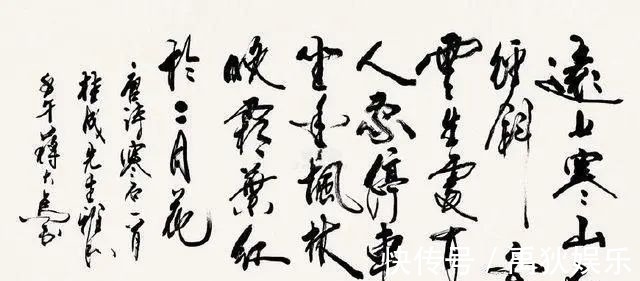 遠上寒山
徑斜
雲生處有
人家停車
坐愛楓林
晚霜葉紅
於二月花
唐詩寒石一首
桂成先生雅正
壬午蒋大為书
快传号 / 禹狄娱乐